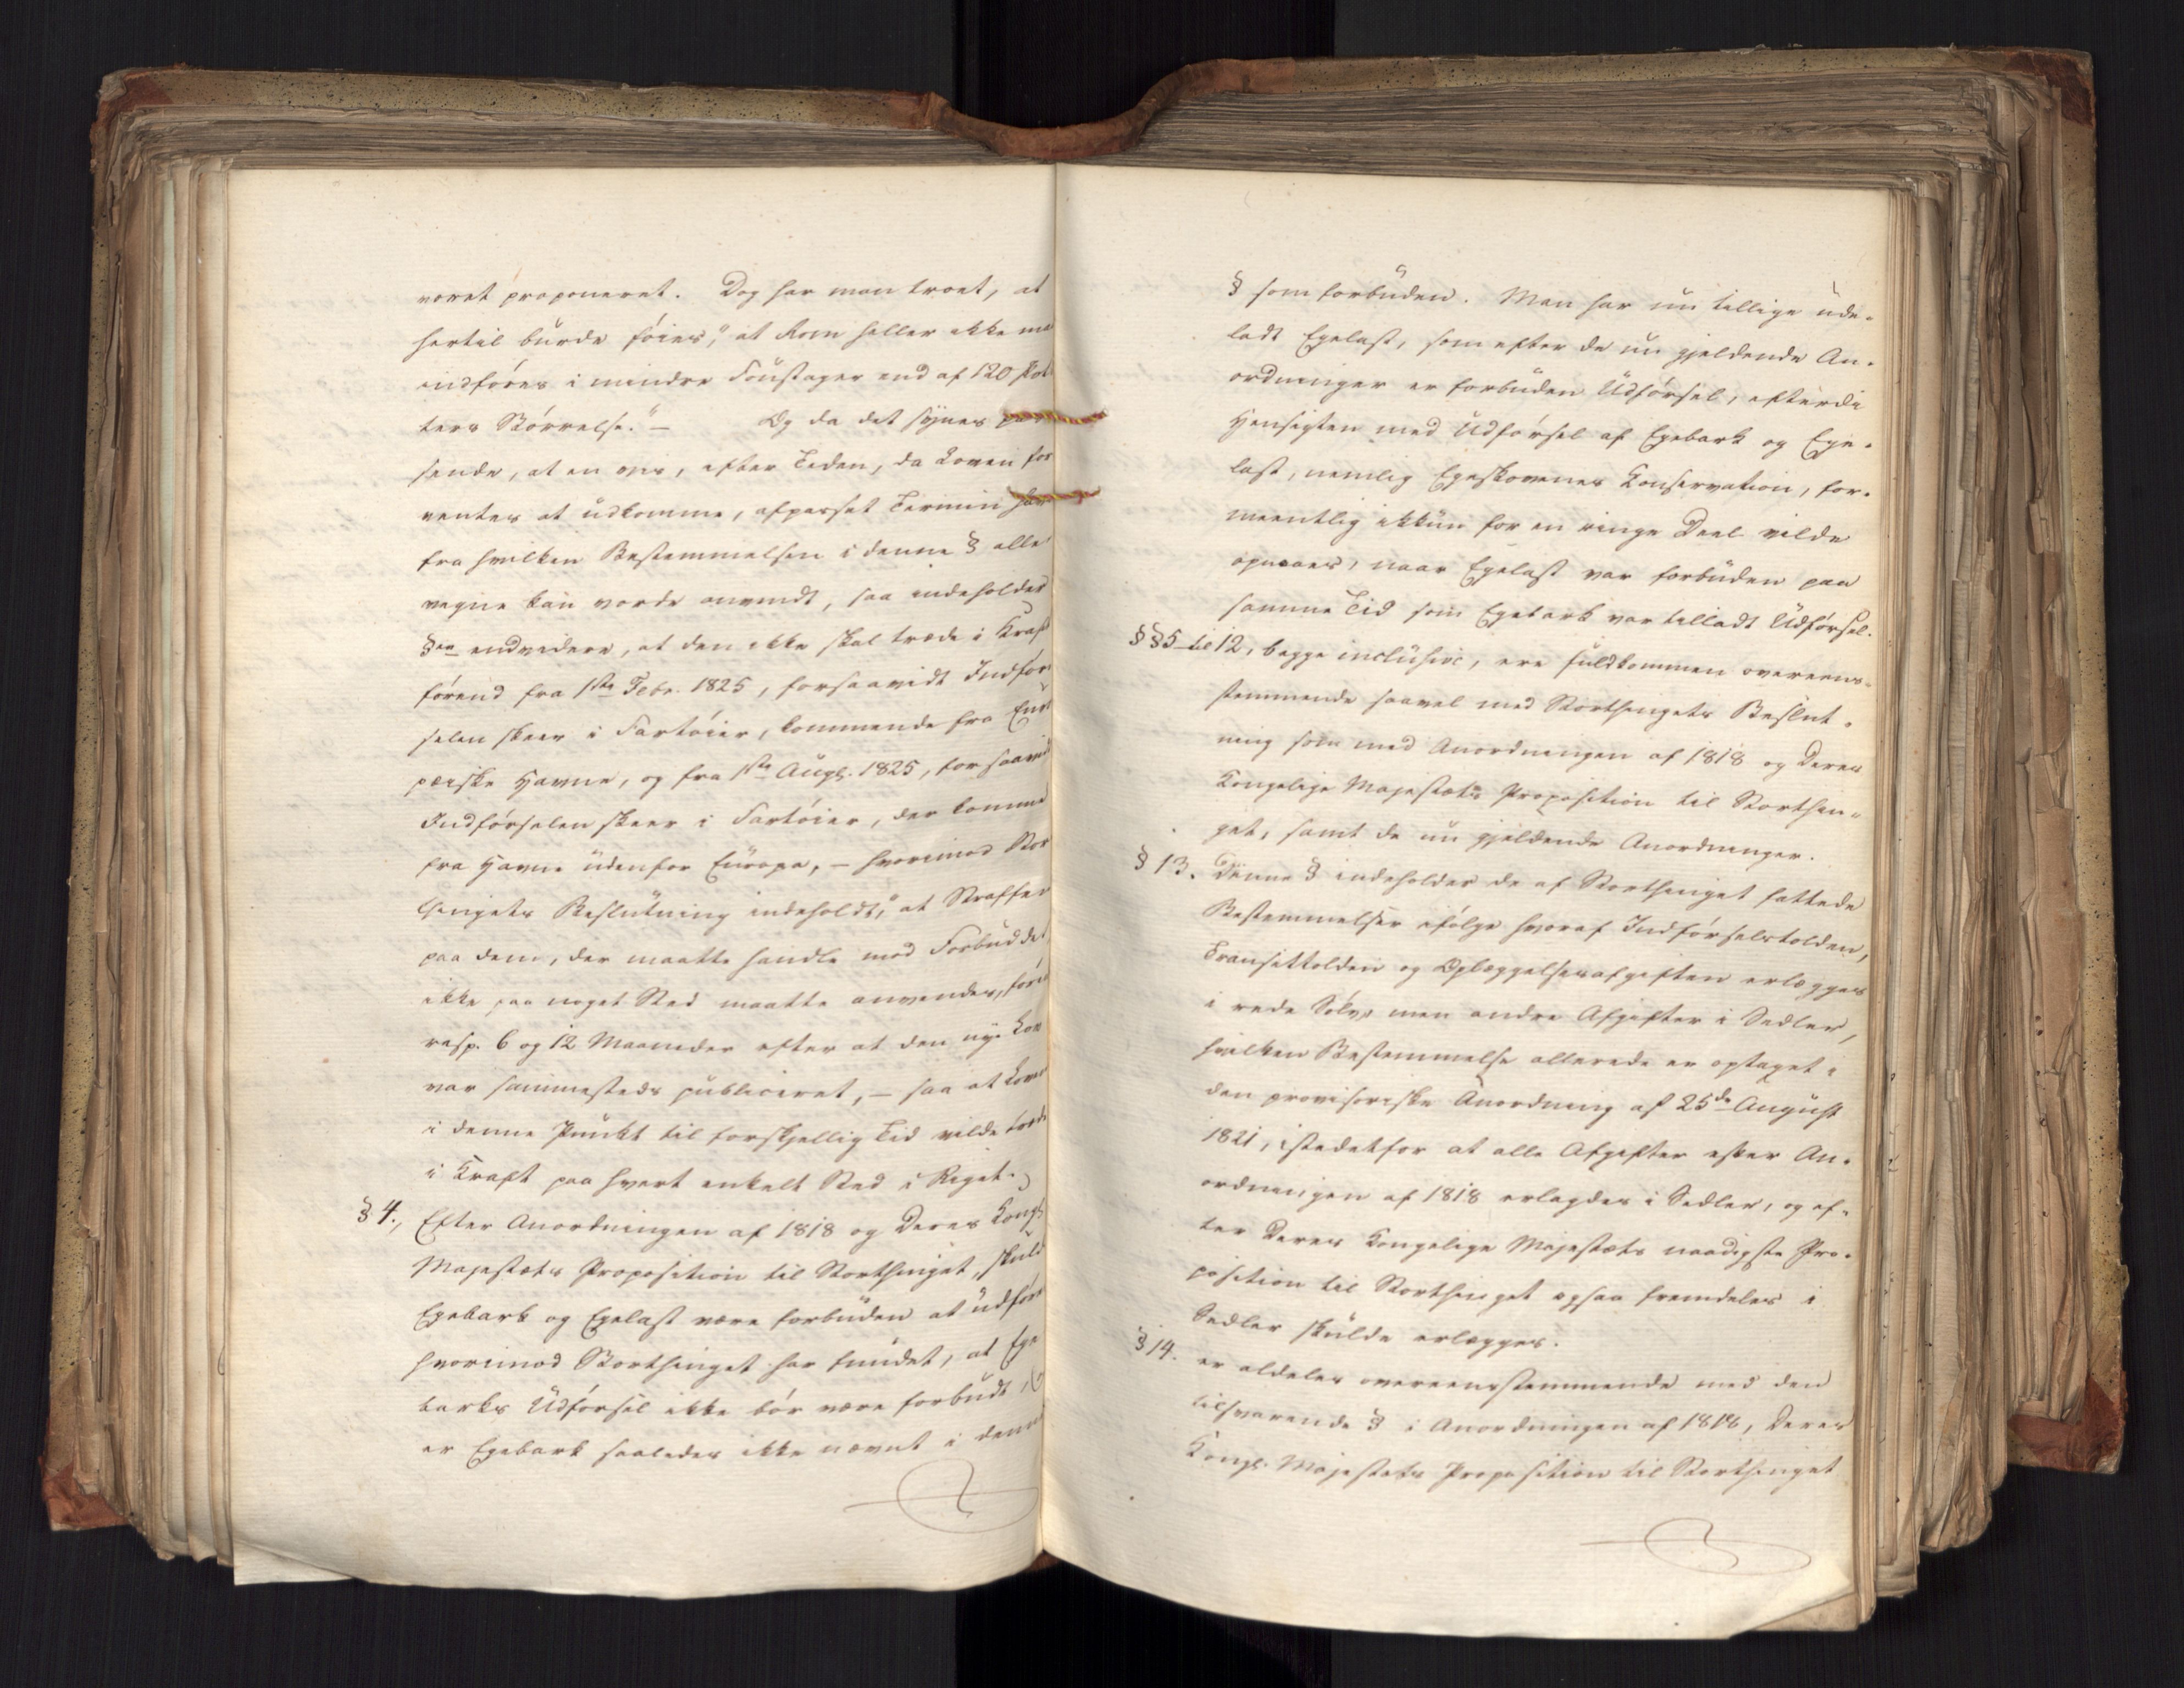 været proponeret. Dog har man troet, at
hertil burde føies, "at Rom heller ikke maa
indføres i mindre Foustager end af 120 Pot-
ters Størrelse." — Og da det synes pas-
sende, at en vis, efter Tiden, da Loven for-
ventes at udkomme, afpasset Termin har
fra hvilken Bestemmelsen i denne § alle-
vegne kan vorde anvendt, saa indeholder
§en endvidere, at den ikke skal træde i Kraft
førend fra 1ste Febr. 1825, forsaavidt Indfør-
selen skeer i Fartøier, kommende fra Euro-
pæiske Havne, og fra 1ste Augs. 1825, forsaavidt
Indførselen skeer i Fartøier, der komme
fra Havne udenfor Europa, — hvorimod Stor-
thingets Beslutning indeholdt, "at Straffen
paa dem, der maatte handle mod Forbuddet
ikke paa noget Sted maatte anvendes, førend
resp. 6 og 12 Maaneder efter at den nye Lov
var sammesteds publiceret, — saa at Loven
i denne Punkt til forskjellig Tid vilde træde
i Kraft paa hvert enkelt Sted i Riget.
§ 4., Efter Anordningen af 1818 og Deres Kongl.
Majestæts Proposition til Storthinget, skuld
Egebark og Egelast være forbuden at udføre
hvorimod Storthinget har fundet, at Ege-
barks Udførsel ikke bør være forbudt,
er Egebark saaledes ikke nævnt i denne
§ som forbuden. Man har nu tillige ude-
ladt Egelast, som efter de nu gjeldende An-
ordninger er forbuden Udførsel, efterdi
Hensigten med Udførsel af Egebark og Ege-
last, nemlig Egeskovenes Conservation, for-
meentlig ikkun for en ringe Deel vilde
opnaaes, naar Egelast var forbuden paa
samme Tid som Egebark var tilladt Udførsel.
§§ 5 til 12, begge inclusive, ere fuldkommen overeens-
stemmende saavel med Storthingets Beslut-
ning som med Anordningen af 1818 og Deres
Kongelige Majestæts Proposition til Storthin-
get, samt de nu gjeldende Anordninger.
§ 13. Denne § indeholder de af Storthinget fattede
Bestemmelser ifølge hvoraf Indførselstolden,
Transittolden og Oplæggelsesafgiften erlægges
i rede Sølv, men andre Afgifter i Sedler,
hvilken Bestemmelse allerede er optaget i
den provisoriske Anordning af 25de August
1821, istedetfor at alle Afgifter efter An-
ordningen af 1818 erlagdes i Sedler, og ef-
ter Deres Kongelige Majestæts naadigste Pro-
position til Storthinget ogsaa fremdeles i
Sedler skulde erlægges.
§ 14. er aldeles overeensstemmende med den
tilsvarende § i Anordningen af 1818, Deres
Kongl. Majestæts Proposition til Storthinget